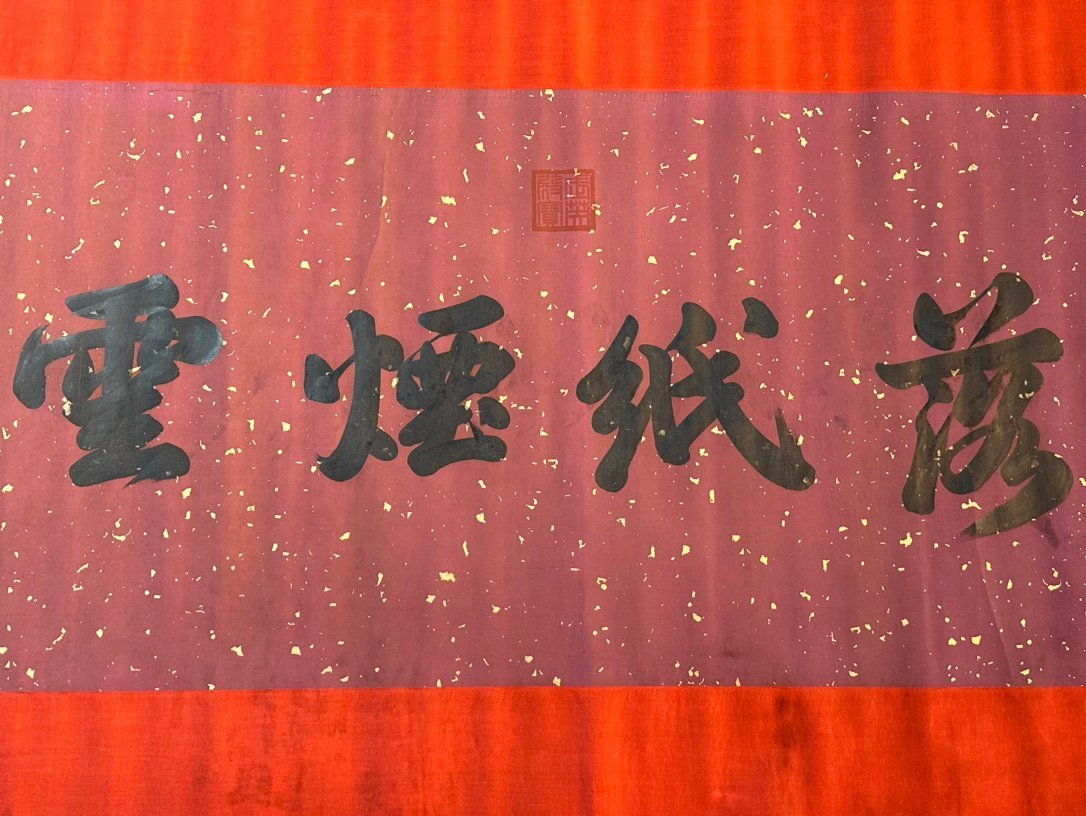 落紙煙雲